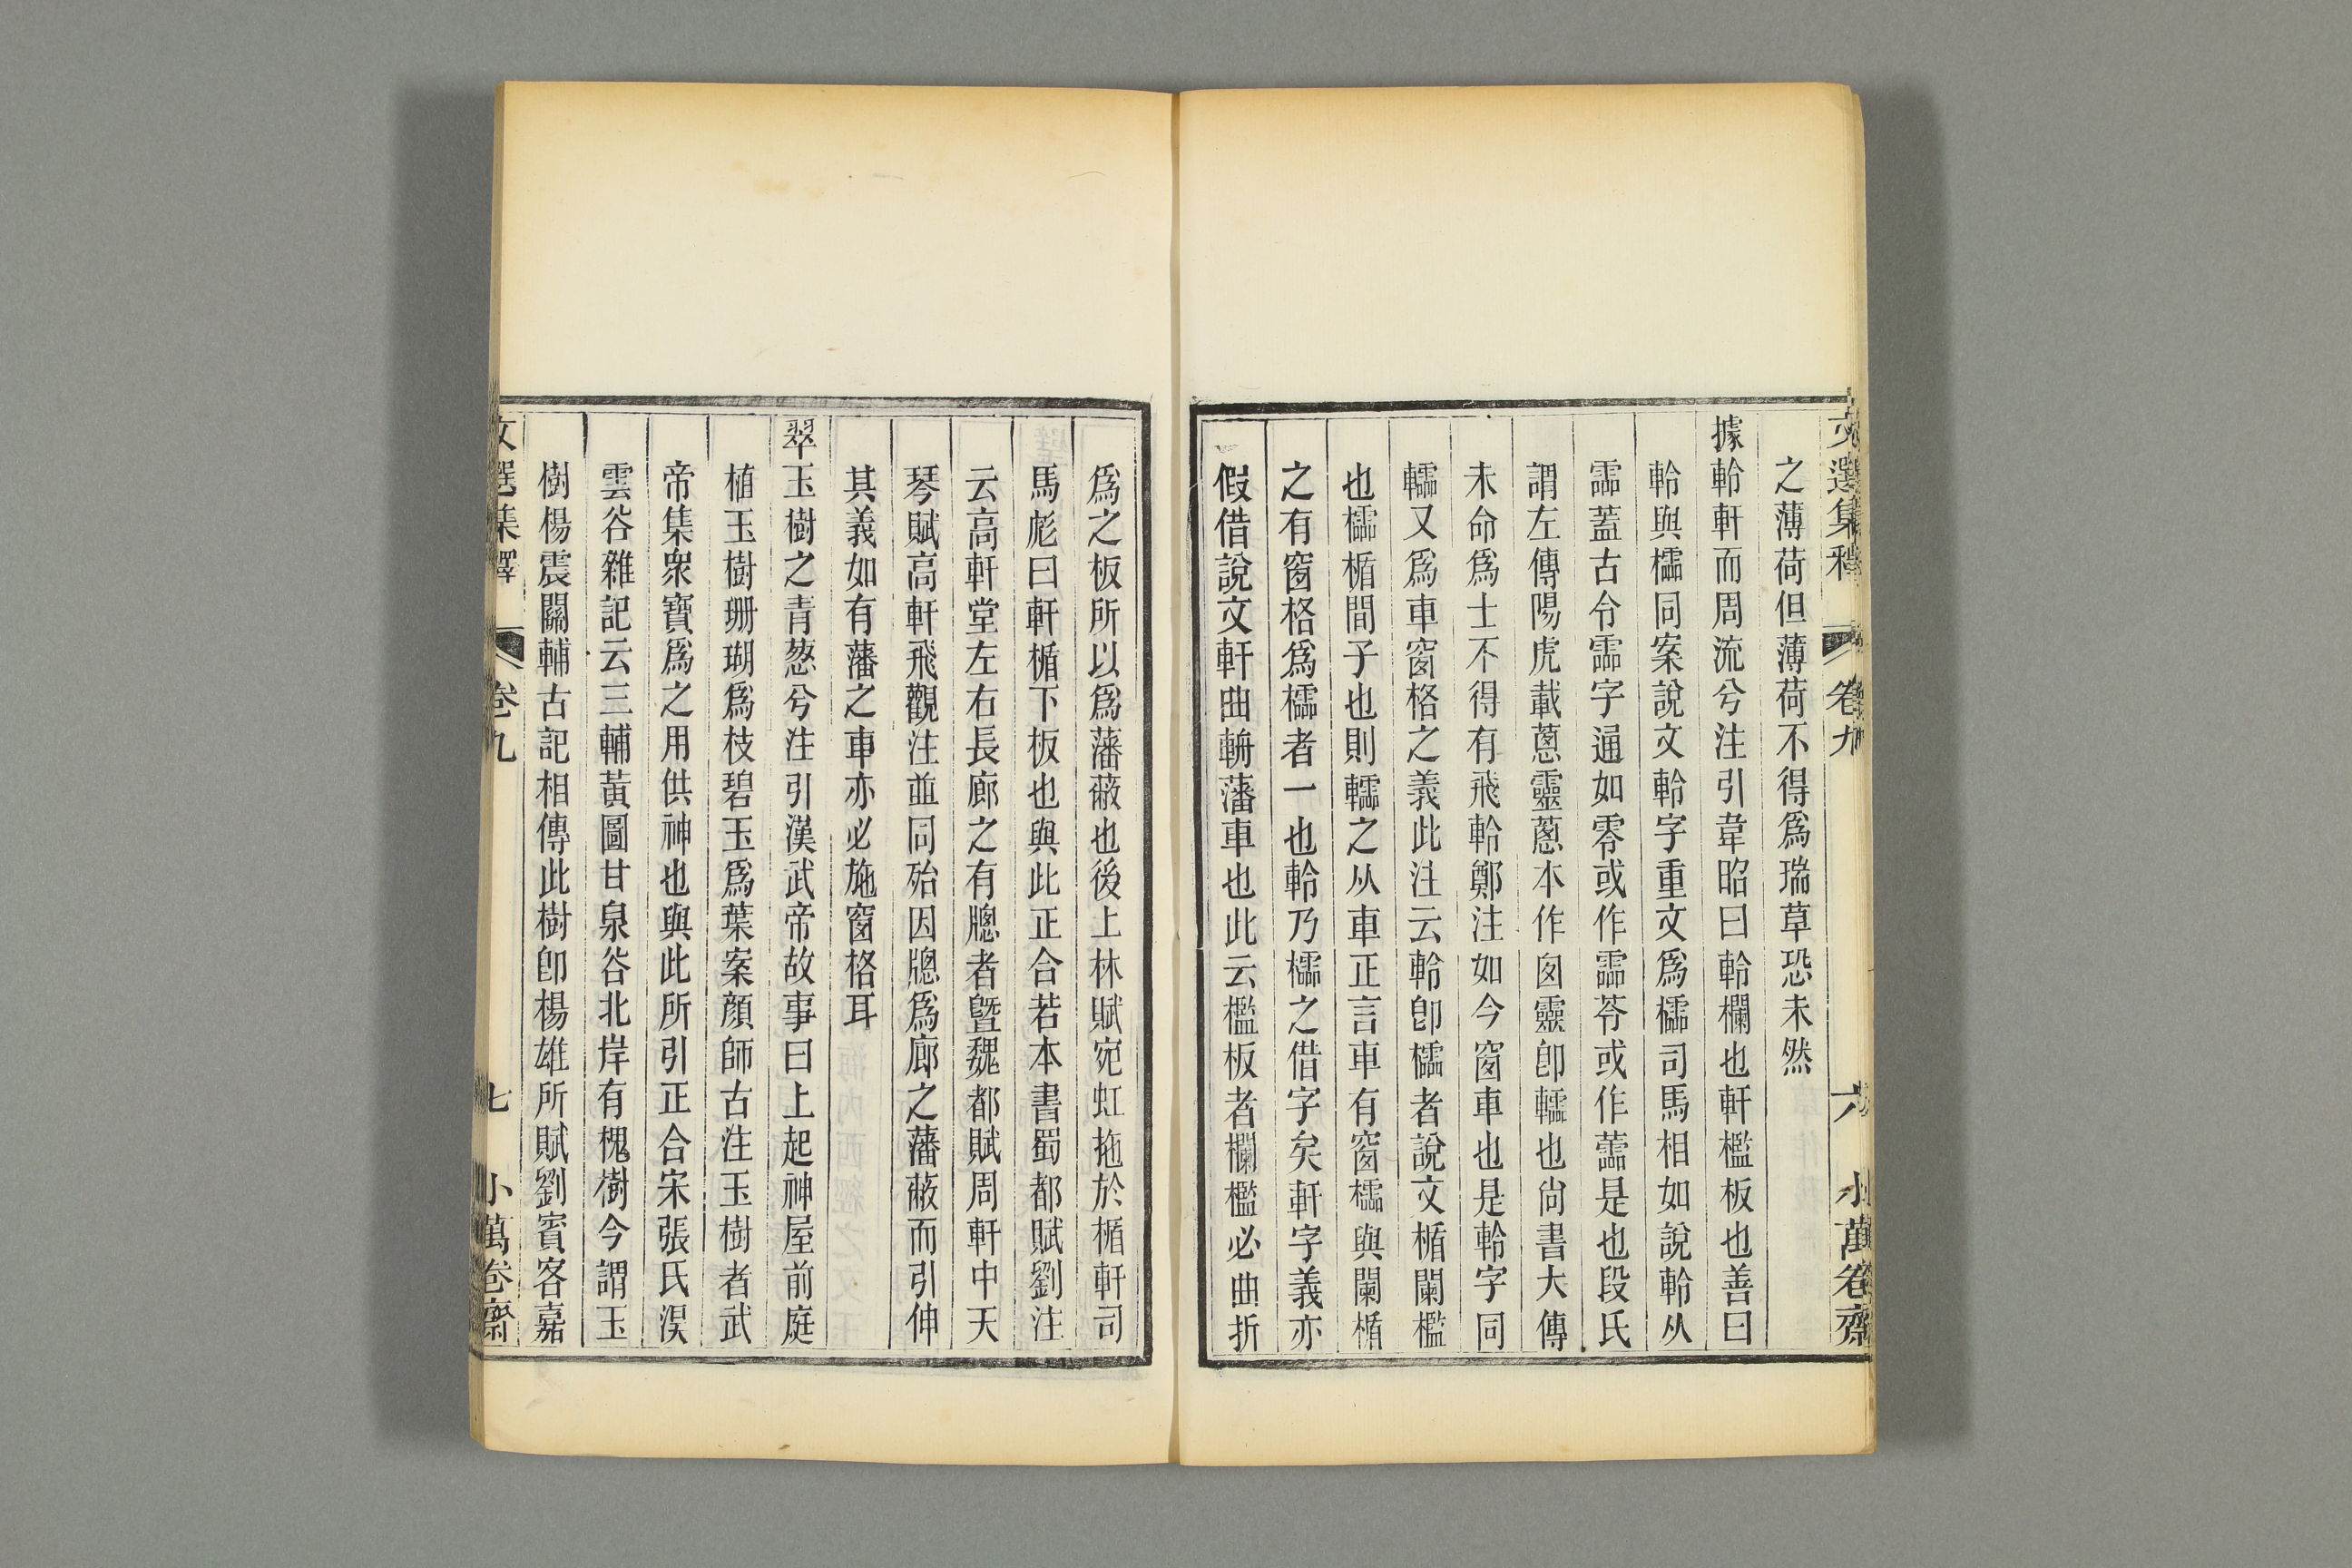 文選集釋 卷九 六 小萬卷齋
之薄荷但薄荷不得爲瑞草恐未然
據軨軒而周流兮注引韋昭曰軨欄也軒檻板也善曰
軨與櫺同案說文軨字重文爲轜司馬相如說軨从
霝蓋古令霝字通如零或作霝苓或作蘦是也段氏
謂左傳陽虎載蔥靈蔥本作囪靈卽轜也尙書大傳
未命爲士不得有飛軨鄭注如今窗車也是軨字同
轜又爲車窗格之義此注云軨卽櫺者說文楯闌檻
也櫺楯間子也則轜之从車正言車有窗櫺與闌楯
之有窗格爲櫺者一也軨乃櫺之借字矣軒字義亦
假借說文軒曲輈藩車也此云檻板者欄檻必曲折
爲之板所以爲藩蔽也後上林賦宛虹拖於楯軒司
馬彪曰軒楯下板也與此正合若本書蜀都賦劉注
云高軒堂左右長廊之有牕者曁魏都賦周軒中天
琴賦高軒飛觀注並同殆因牕爲廊之藩蔽而引伸
其義如有藩之車亦必施窗格耳
翠玉樹之青蔥兮注引漢武帝故事曰上起神屋前庭
植玉樹珊瑚爲枝碧玉爲葉案顏師古注玉樹者武
帝集衆寶爲之用供神也與此所引正合宋張氏淏
雲谷雜記云三輔黃圖甘泉谷北岸有槐樹今謂玉
樹楊震關輔古記相傳此樹卽楊雄所賦劉賓客嘉
文選集釋 卷九 七 小萬卷齋